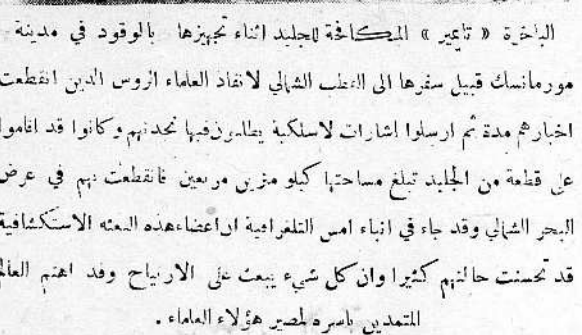 الباخرة « تايمير » المكافحة للجليد اثناء تجهيزها بالوقود في مدينة
مورمانسك قبيل سفرها الى القطب الشمالي لانقاذ العلماء الروس الذين انقطعت
اخبارهم مدة ثم ارسلوا اشارات لاسلكية يطلبون فيها نجدتهم وكانوا قد اقاموا
على قطعة من الجليد تبلغ مساحتها كيلو مترين مربعين فانقطعت بهم في عرض
البحر الشمالي وقد جاء في انباء امس التلغرافية ان اعضاء هذه البعثه الاستكشافية
قد تحسنت حالتهم كثيرا وان كل شيء يبعث على الارتياح وقد اهتم العالم
المتمدين باسره لمصير هؤلاء العلماء .